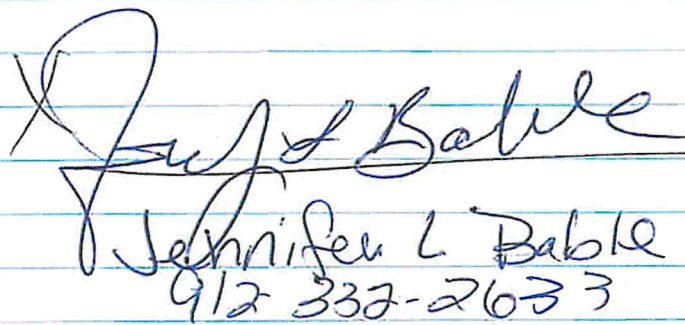 X Jenf L Bable
Jennifer L Bable
912-332-2633